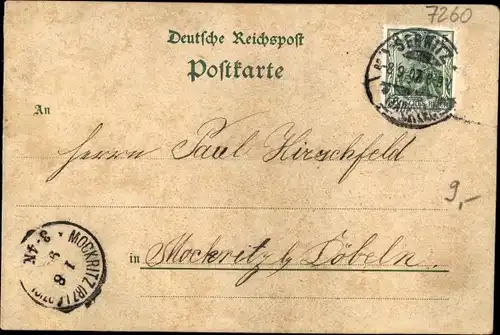 7260
Deutsche Reichspost
Postkarte
SEBNITZ
An
Herrn Paul Hirschfeld
9,-
in Mockritz b/ Döbeln.
MOCKRITZ (BZ. L
3-4N